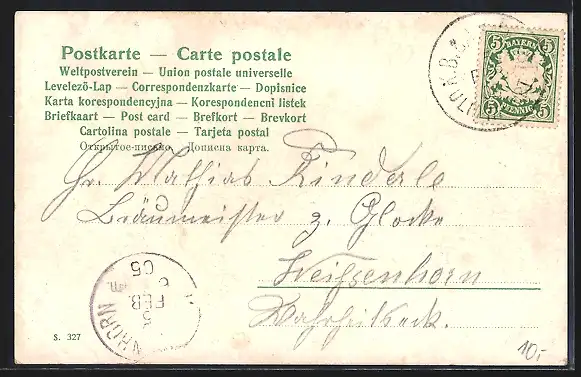 Postkarte — Carte postale
Weltpostverein — Union postale universelle
Levelező-Lap — Correspondenzkarte — Dopisnice
Karta korespondencyjna — Korespondencni listek
Briefkaart — Post card — Brefkort — Brevkort
Cartolina postale — Tarjeta postal
Открытое-письмо. Дописна карта.
5 BAYERN 5
5 PFENNIG 5
K.B.
Hr. Mathias Kinderle
Bräumeister z. Glocke
Weißenhorn
NHORN
FEB.
05
S. 327
10,-